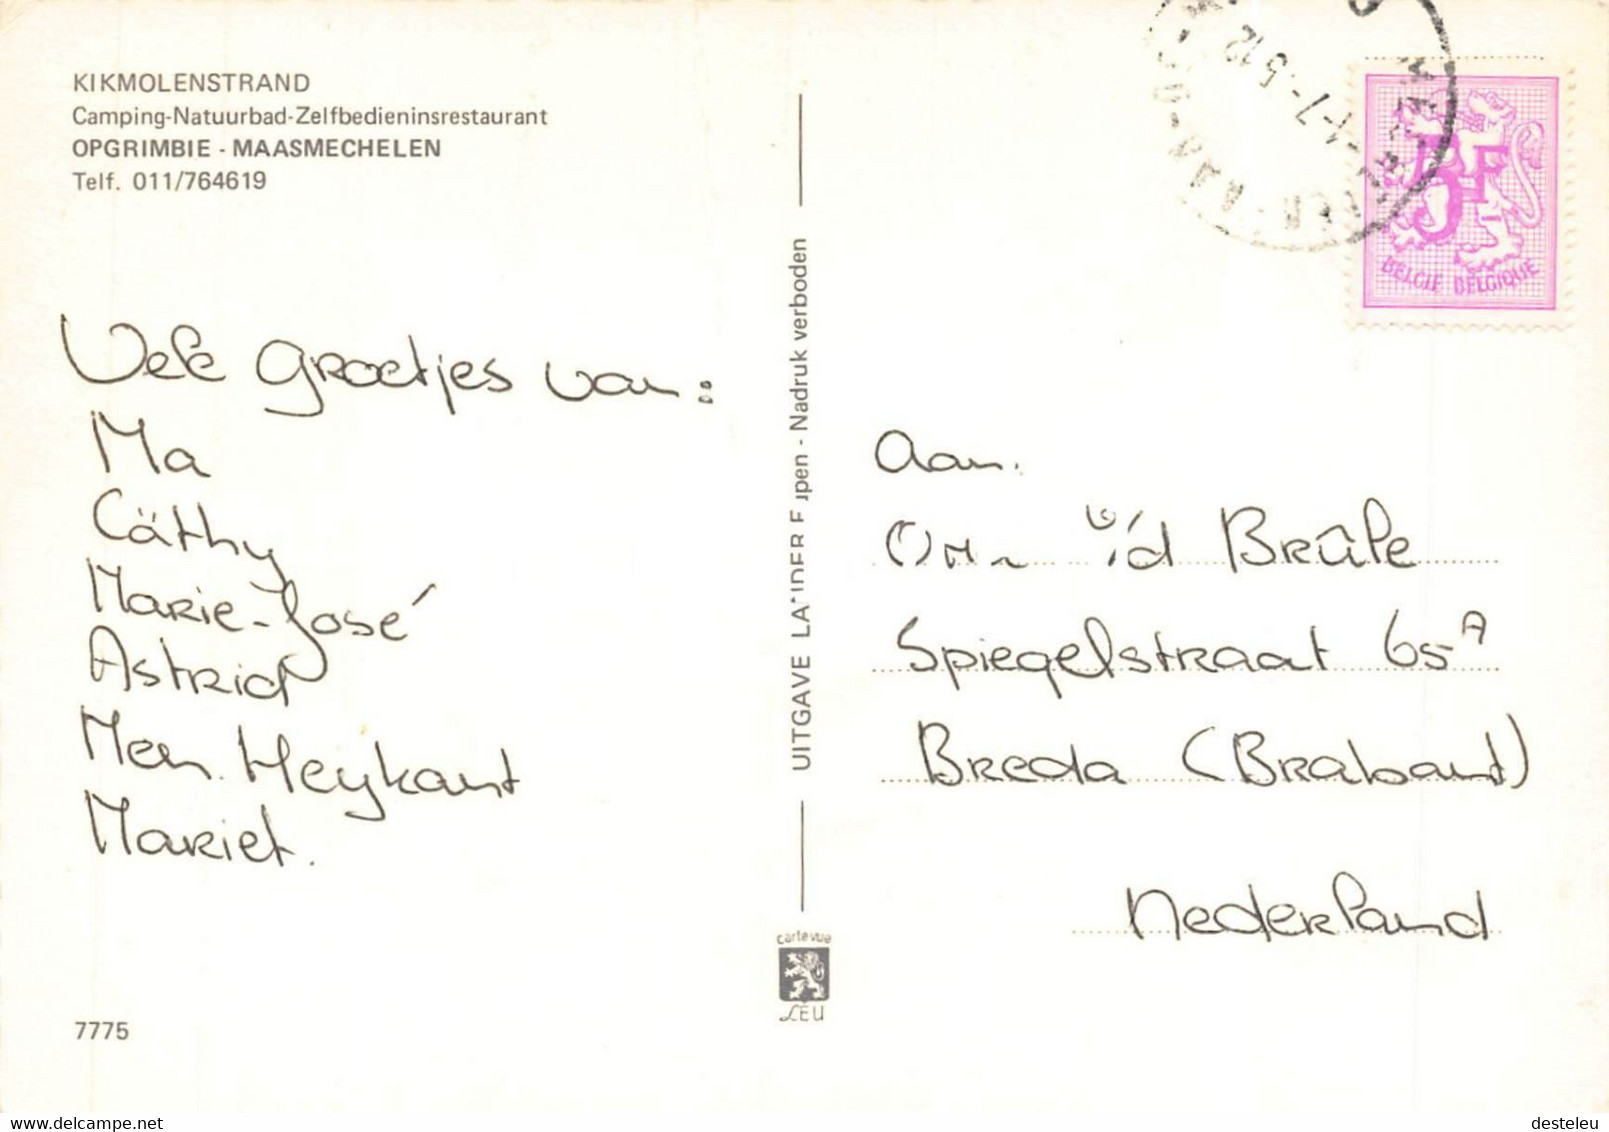 KIKMOLENSTRAND
Camping-Natuurbad-Zelfbedieninsrestaurant
OPGRIMBIE - MAASMECHELEN
Telf. 011/764619
Vele groetjes van:
Ma
Cäthy
Marie-José
Astrid
Men. Heykant
Mariet.
7775
UITGAVE - Nadruk verboden
cartevue
LEU
5F
BELGIE BELGIQUE
Aan.
v/d Brûle
Spiegelstraat 65A
Breda (Brabant)
Nederland
desteleu